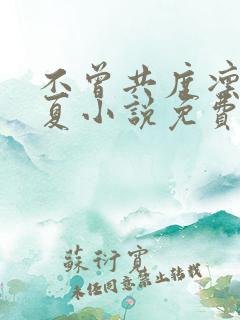 不曾共度凛
夏小说免费
苏衍宽
未经同意禁止转载